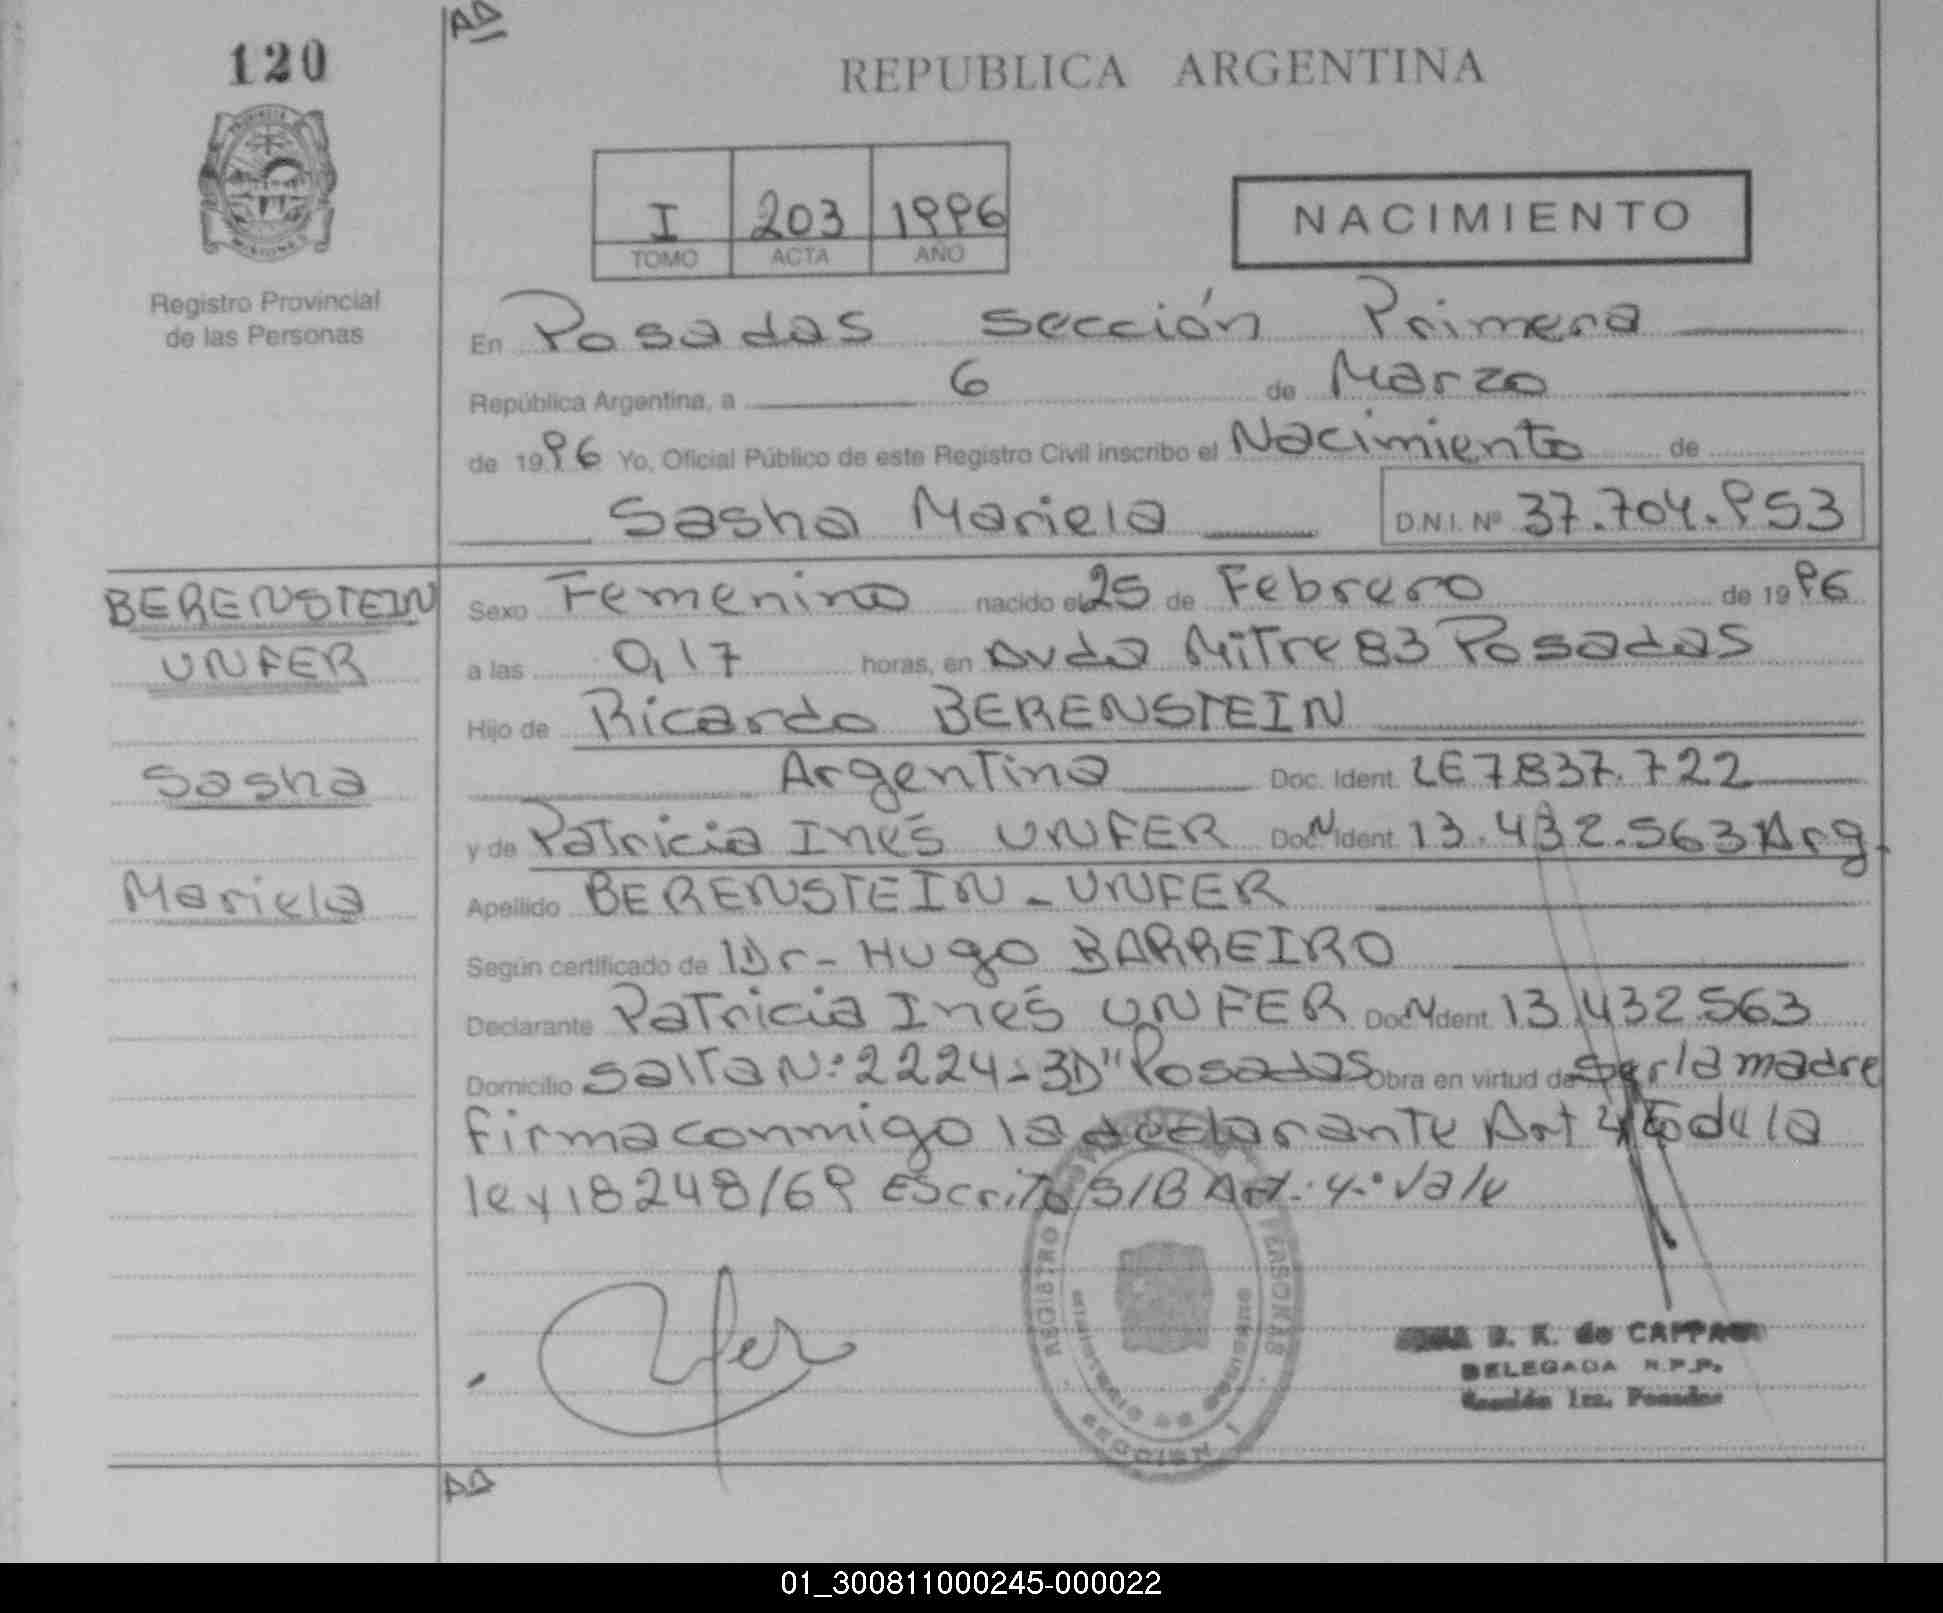 AD
120
REPUBLICA ARGENTINA
I 203 1996
TOMO ACTA AÑO
NACIMIENTO
Registro Provincial
de las Personas
En Posadas sección Primera
República Argentina, a 6 de Marzo
de 1996 Yo, Oficial Público de este Registro Civil inscribo el Nacimiento de
Sasha Mariela D.N.I. Nº 37.704.953
BERENSTEIN
UNFER
Sasha
Mariela
Sexo Femenino nacido el 25 de Febrero de 1996
a las 0,17 horas, en Avda Mitre 83 Posadas
Hijo de Ricardo BERENSTEIN
Argentino Doc. Ident. LE 7.837.722
y de Patricia Inés UNFER Doc. N Ident. 13.432.563 Arg.
Apellido BERENSTEIN - UNFER
Según certificado de Dr - Hugo BARREIRO
Declarante Patricia Inés UNFER Doc. N Ident. 13.432.563
Domicilio Salta Nº: 2224 - 3D" Posadas Obra en virtud de ser la madre
firma conmigo la declarante Art de la
ley 18248/69 Escrito S/B Art. 4.º Vale
REGISTRO PERSONAS
MINISTERIO DE GOBIERNO
SECCION 1
B. K. de
DELEGADA R.P.P.
Sección 1ra. Posadas
AD
01_300811000245-000022